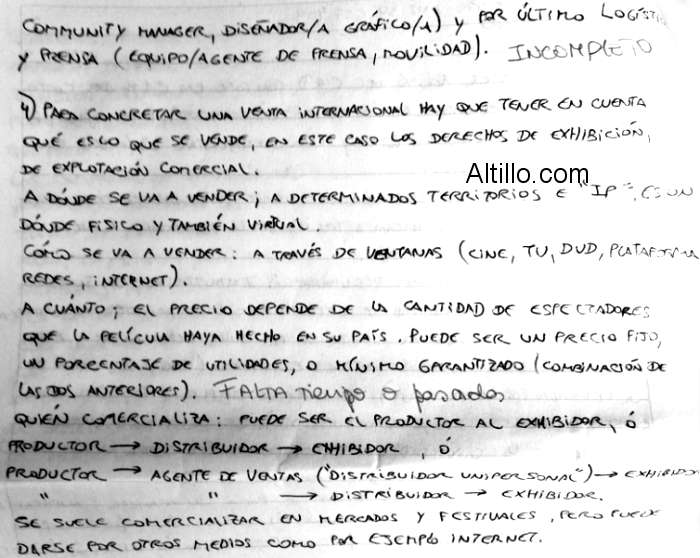 COMMUNITY MANAGER, DISEÑADOR/A GRÁFICO/A) Y POR ÚLTIMO LOGÍSTI
Y PRENSA (EQUIPO/AGENTE DE PRENSA, MOVILIDAD). INCOMPLETO
4) PARA CONCRETAR UNA VENTA INTERNACIONAL HAY QUE TENER EN CUENTA
QUÉ ES LO QUE SE VENDE, EN ESTE CASO LOS DERECHOS DE EXHIBICIÓN,
DE EXPLOTACIÓN COMERCIAL.
Altillo.com
A DÓNDE SE VA A VENDER; A DETERMINADOS TERRITORIOS E "IP", ES UN
DÓNDE FÍSICO Y TAMBIÉN VIRTUAL.
CÓMO SE VA A VENDER: A TRAVÉS DE VENTANAS (CINE, TV, DVD, PLATAFORMA
REDES, INTERNET).
A CUÁNTO; EL PRECIO DEPENDE DE LA CANTIDAD DE ESPECTADORES
QUE LA PELÍCULA HAYA HECHO EN SU PAÍS. PUEDE SER UN PRECIO FIJO,
UN PORCENTAJE DE UTILIDADES, O MÍNIMO GARANTIZADO (COMBINACIÓN DE
LAS DOS ANTERIORES). FALTA tiempo o pasadas
QUIÉN COMERCIALIZA: PUEDE SER EL PRODUCTOR AL EXHIBIDOR, Ó
PRODUCTOR → DISTRIBUIDOR → EXHIBIDOR, Ó
PRODUCTOR → AGENTE DE VENTAS ("DISTRIBUIDOR UNIPERSONAL") → EXHIBIDOR
" " → DISTRIBUIDOR → EXHIBIDOR.
SE SUELE COMERCIALIZAR EN MERCADOS Y FESTIVALES, PERO PUEDE
DARSE POR OTROS MEDIOS COMO POR EJEMPLO INTERNET.